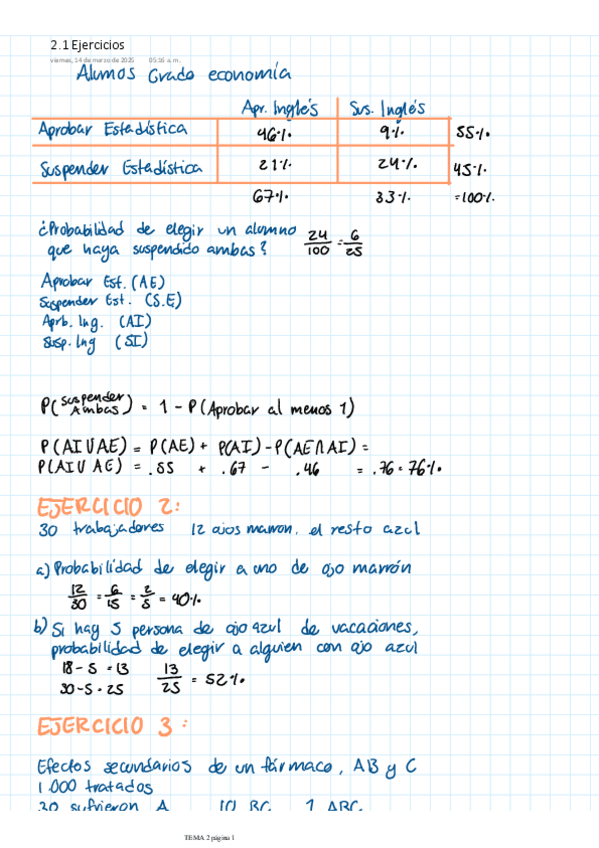 2.1 Ejercicios
viernes, 14 de marzo de 2025 05:16 a.m.
Alumos Grado economía
Apr. Inglés Sus. Inglés
Aprobar Estadística 46% 9% 55%
Suspender Estadística 21% 24% 45%
67% 33% =100%
¿Probabilidad de elegir un alumno 24/100 = 6/25
que haya suspendido ambas?
Aprobar Est. (AE)
Suspender Est. (S.E)
Aprb. Ing. (AI)
Susp. Ing (SI)
P(Suspender Ambas) = 1 - P(Aprobar al menos 1)
P(AI∪AE) = P(AE) + P(AI) - P(AE∩AI) =
P(AI∪AE) = .55 + .67 - .46 = .76 = 76%
EJERCICIO 2:
30 trabajadores 12 ojos marron, el resto azul
a) Probabilidad de elegir a uno de ojo marrón
12/30 = 6/15 = 2/5 = 40%
b) Si hay 5 persona de ojo azul de vacaciones,
probabilidad de elegir a alguien con ojo azul
18-5 = 13 13/25 = 52%
30-5 = 25
EJERCICIO 3:
Efectos secundarios de un fármaco, AB y C
1.000 tratados
30 sufrieron A 10 BC 7 ABC
TEMA 2 página 1